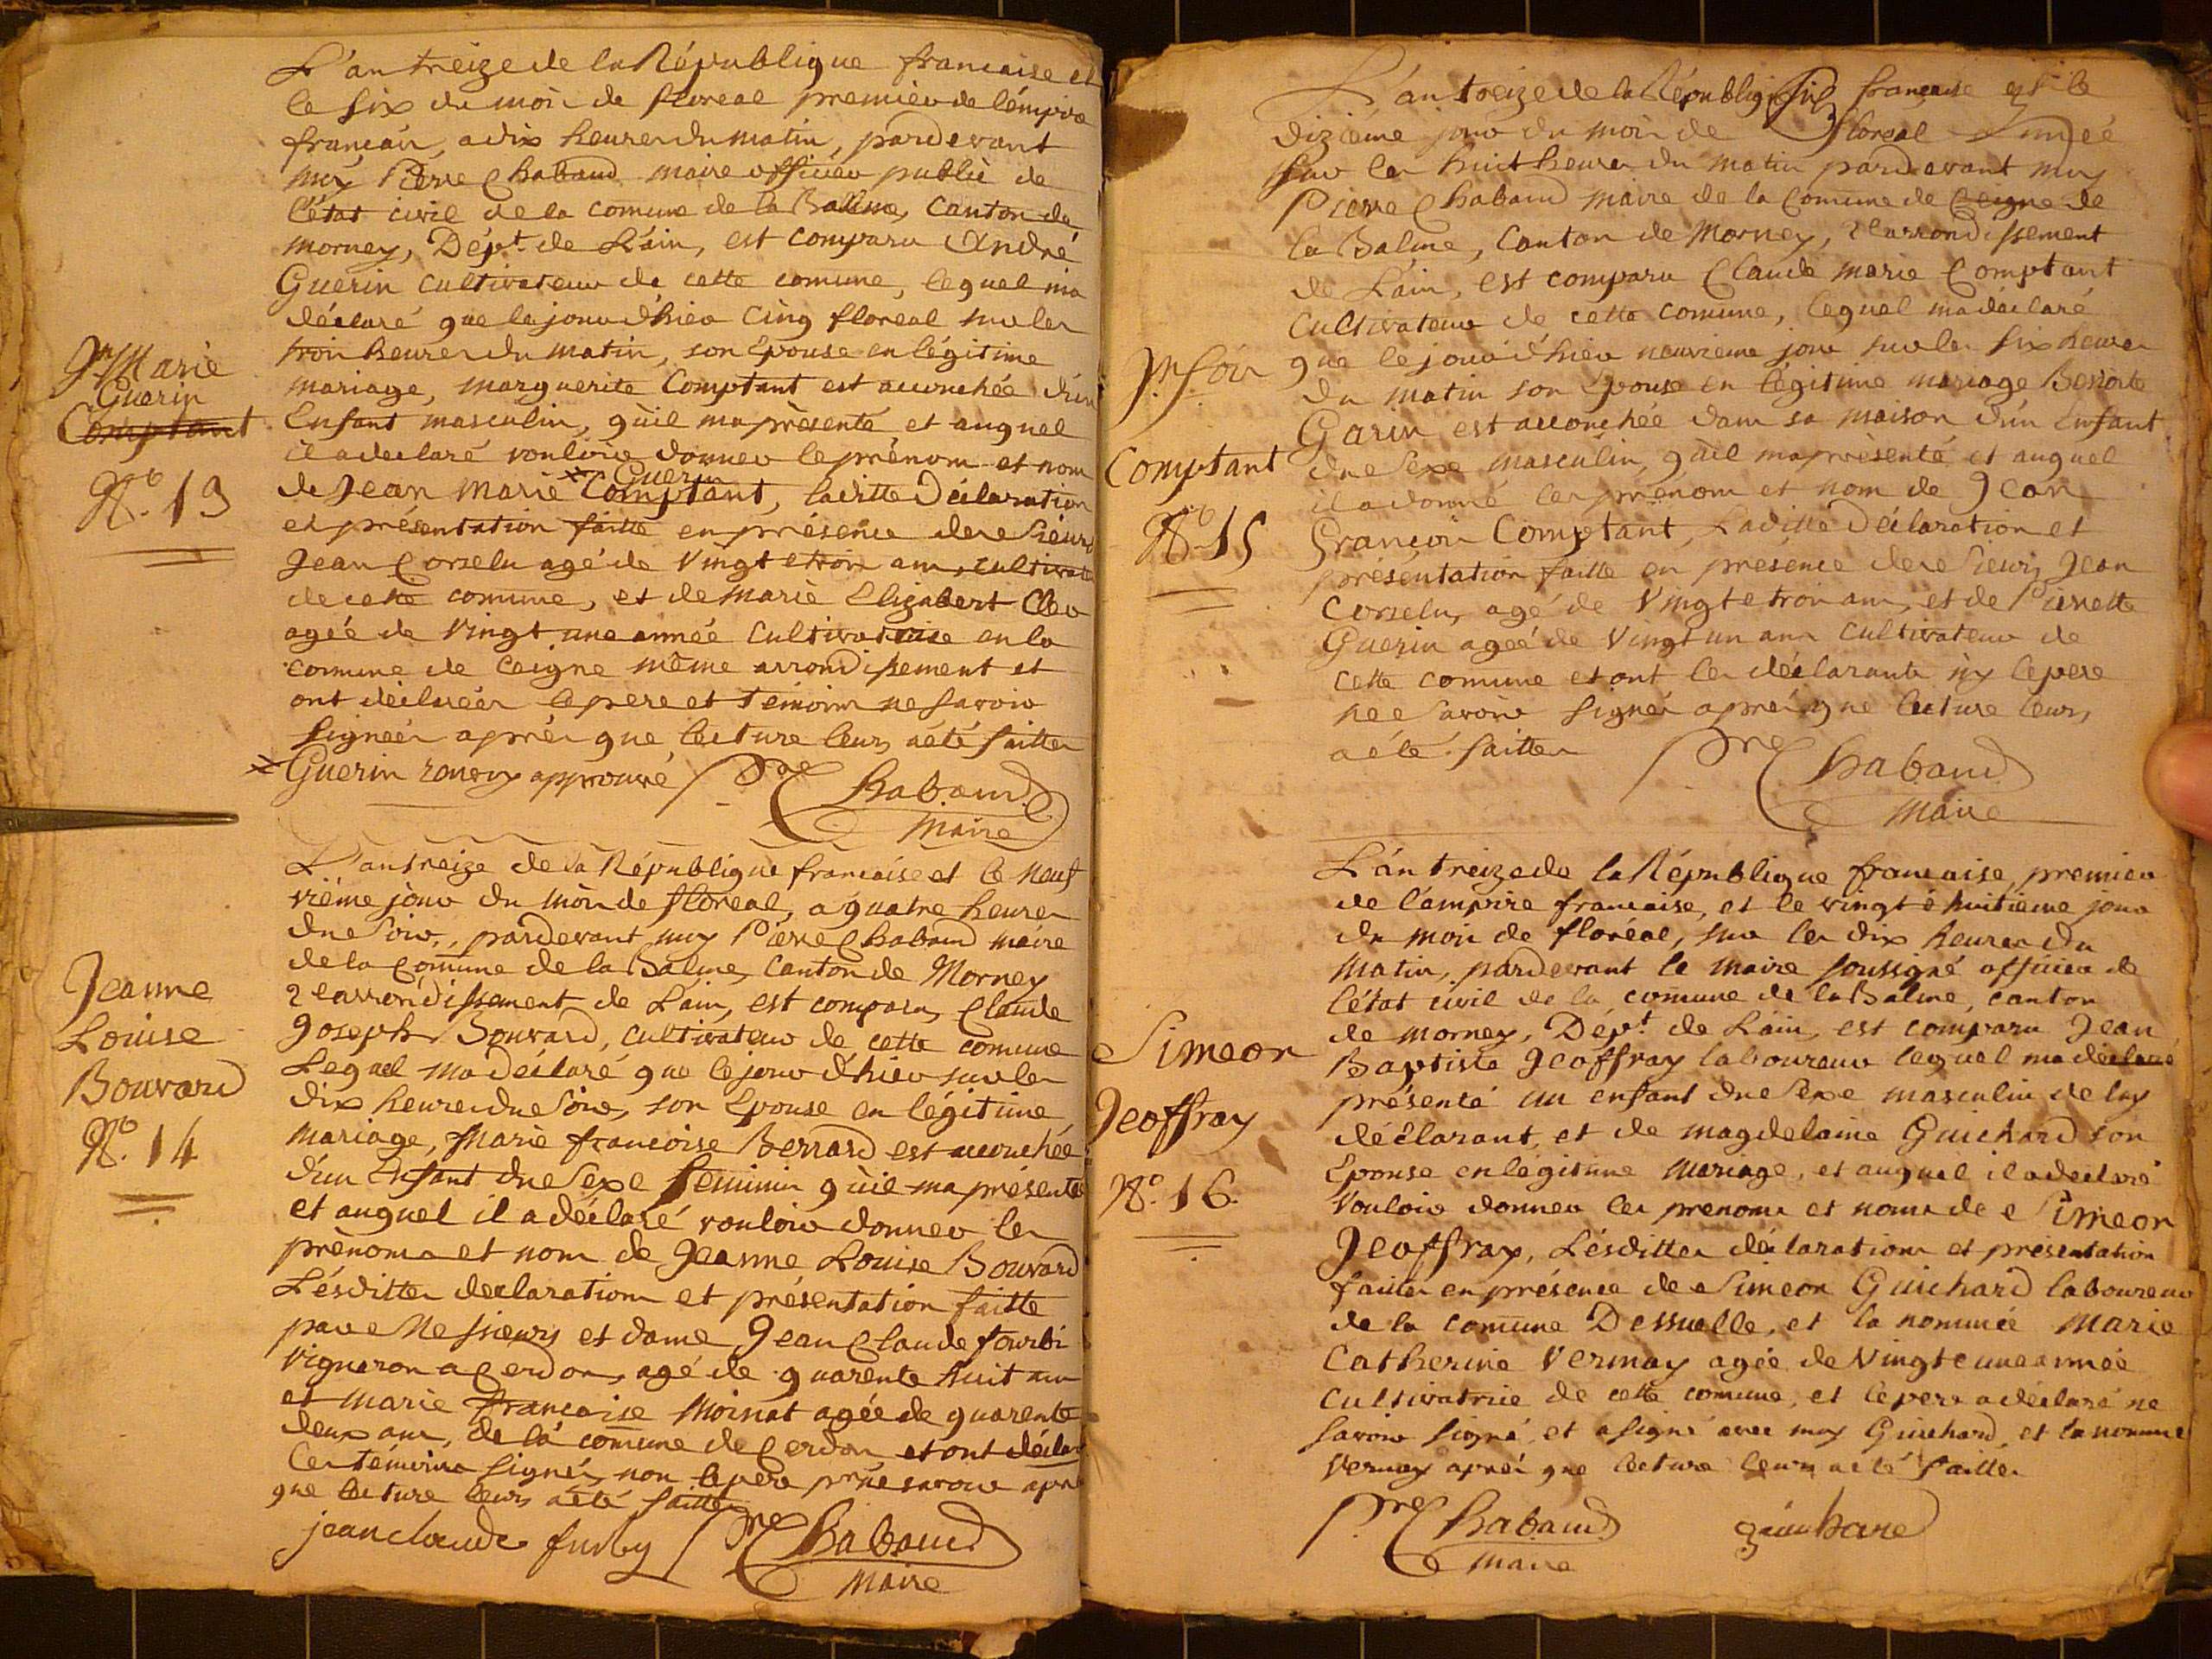 L'an treize de la République francaise et
le six du mois de floreal premier de lémpire
francais, a dix heures du matin, pardevant
moy Pierre Chabaud maire officier public de
l'état civil de la comune de la Balme, canton de
Morney, Dépt. de L'ain, est comparu André
Guerin cultivateur de cette comune, lequel m'a
déclaré que le jour d'hier cinq floreal sur les
trois heures du matin, son Epouse en légitime
mariage, marguerite Comptant est accouchée d'un
Enfant masculin, qu'il m'a présenté et auquel
il a declaré vouloir donner le prénom et nom
Guerin
de Jean Marie Comptant, laditte Déclaration
et présentation faitte en présence de Sieurs
Jean Corselu agé de vingt et trois ans, cultivate
de cette comune, et de Marie Elizabert
agée de vingt une année cultivatrise en la
comune de Ceigne même arrondissement et
ont déclarés le pere et témoins ne savoir
signéer aprés que lecture leurs a été faitte
Guerin approuvé Pre Chabaud
Maire
Jn Marie
Guerin
Comptant
No. 13
L'an treize de la République francaise et le neuf
vième jour du mois de floreal, a quatre heures
du soir, pardevant moy Pierre Chabaud maire
de la Comune de la Balme, canton de Mornay
2e arrondissement de L'ain, est comparu, Claude
Joseph Bouvard, cultivateur de cette comune
Lequel m'a déclaré que le jour d'hier sur les
dix heures du soir, son Epouse en légitime
mariage, Marie francoise Berrard est accouchée
d'un Enfant du Sexe feminin qu'il m'a présenté
et auquel il a déclaré vouloir donner les
prénoms et nom de Jeanne Louise Bouvard
Lésditte declaration et présentation faitte
par Messieurs et dame Jean Claude fourbi
vigneron a Cerdon, agé de quarente huit ans
et marie francoise Moinat agée de quarente
deux ans, de la comune de Cerdon et ont déclar
les témoins signér, non le pere savoir aprés
que lecture leurs a été faitte
jean claude furby Pre Chabaud
Maire
Jeanne
Louise
Bouvard
No. 14
L'an treize de la République francaise et le
dizième jour du mois de floreal
sur les huit heures du matin pardevant moy
Pierre Chabaud maire de la Comune de Ceigne de
la Balme, Canton de Morney, 2e arrondissement
de L'ain, est comparu Claude marie Comptant
Cultivateur de cette comune, lequel m'a déclaré
que le jour d'hier neuvieme jour sur les six heures
du matin son Epouse en légitime mariage Benoite
Garin est accouchée dans sa maison d'un Enfant
du Sexe masculin, qu'il m'a présenté et auquel
il a donné les prénom et nom de Jean
François Comptant, Laditte Déclaration et
présentation faitte en presence de Sieurs Jean
Corselu, agé de vingt et trois ans, et de Pierrette
Guerin ageé de vingt un ans cultivateur de
cette comune et ont les déclarants ny le pere
ne savoir signér aprés que lecture leurs
a été faitte Pre Chabaud
Maire
Comptant
No. 15
L'an treize de la République francaise, premier
de l'ampire francaise, et le vingt é huitieme jour
du mois de floréal, sur les dix heures du
matin, pardevant le maire soussigné officier de
l'état civil de la comune de la Balme, canton
de Morney, Dépt. de L'ain, est comparu Jean
Baptiste Jeoffray laboureur lequel m'a déclaré
présenté un enfant du Sexe masculin de luy
déclarant, et de magdelaine Guichard son
Epouse en légitime mariage, et auquel il a declaré
Vouloir donner les prenoms et noms de Simeon
Jeoffray, Lésdittes déclarations et présentation
faittes en présence de Simeon Guichard laboureur
de la comune Dessuelle, et la nommée Marie
Catherine Vermay agée de vingt e une année
cultivatrice de cette comune, et le pere a déclaré ne
savoir signé, et a signé avec moy Guichard, et la nommé
Vermay aprés que lecture leurs a été faitte
Pre Chabaud guichard
Maire
Simeon
Jeoffray
No. 16.